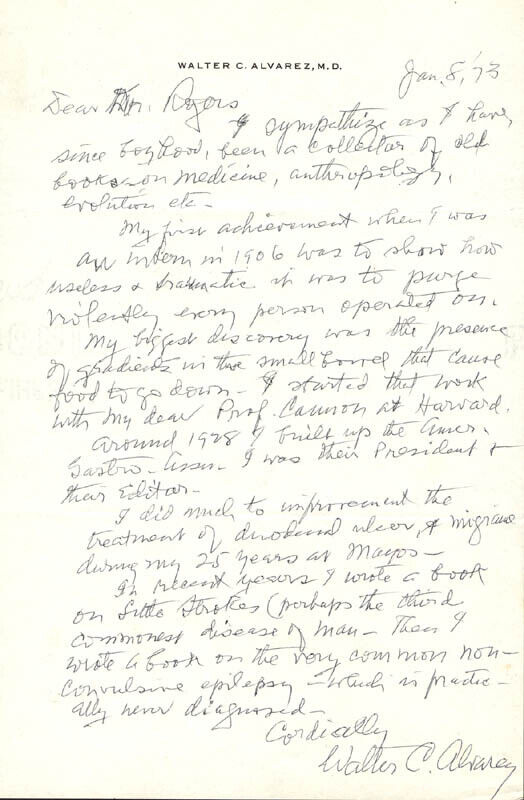 WALTER C. ALVAREZ, M.D.
Jan. 8, '73
Dear Mr. Rogers
I sympathize as I have,
since boyhood, been a collector of old
books on medicine, anthropology,
evolution etc-
My first achievement when I was
an intern in 1906 was to show how
useless & traumatic it was to purge
violently every person operated on.
My biggest discovery was the presence
of gradients in the small bowel that cause
food to go down- I started that work
with my dear Prof. Cannon at Harvard.
Around 1928 I built up the Amer.
Gastro- Assn- I was their President &
their Editor-
I did much to improvement the
treatment of duodenal ulcer, & migraine
during my 25 years at Mayos-
In recent years I wrote a book
on Little Strokes (perhaps the third
commonest disease of man- Then I
wrote a book on the very common non-
convulsive epilepsy - which is practic-
ally never diagnosed-
Cordially
Walter C. Alvarez